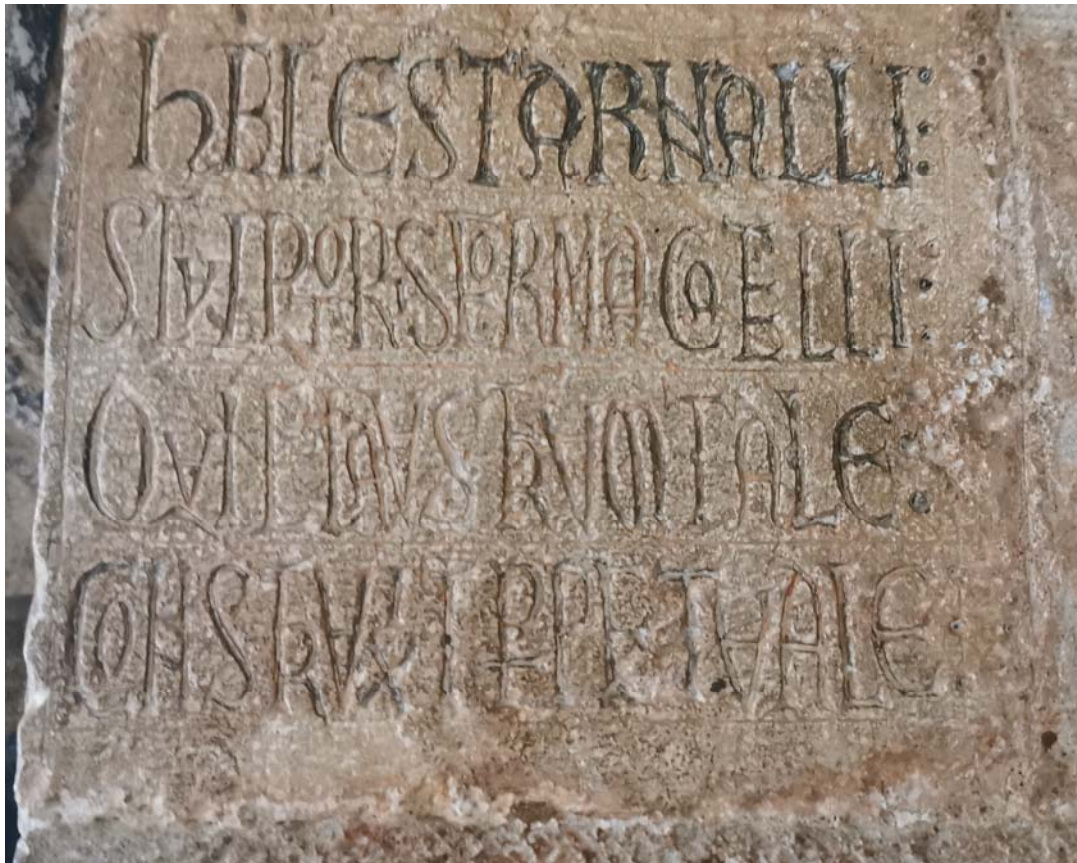 HEC EST ARNALLI:
SCVLPTORIS FORMA CATELLI:
QVI CLAVSTRVM TALE:
CONSTRVXIT PPETVALE: